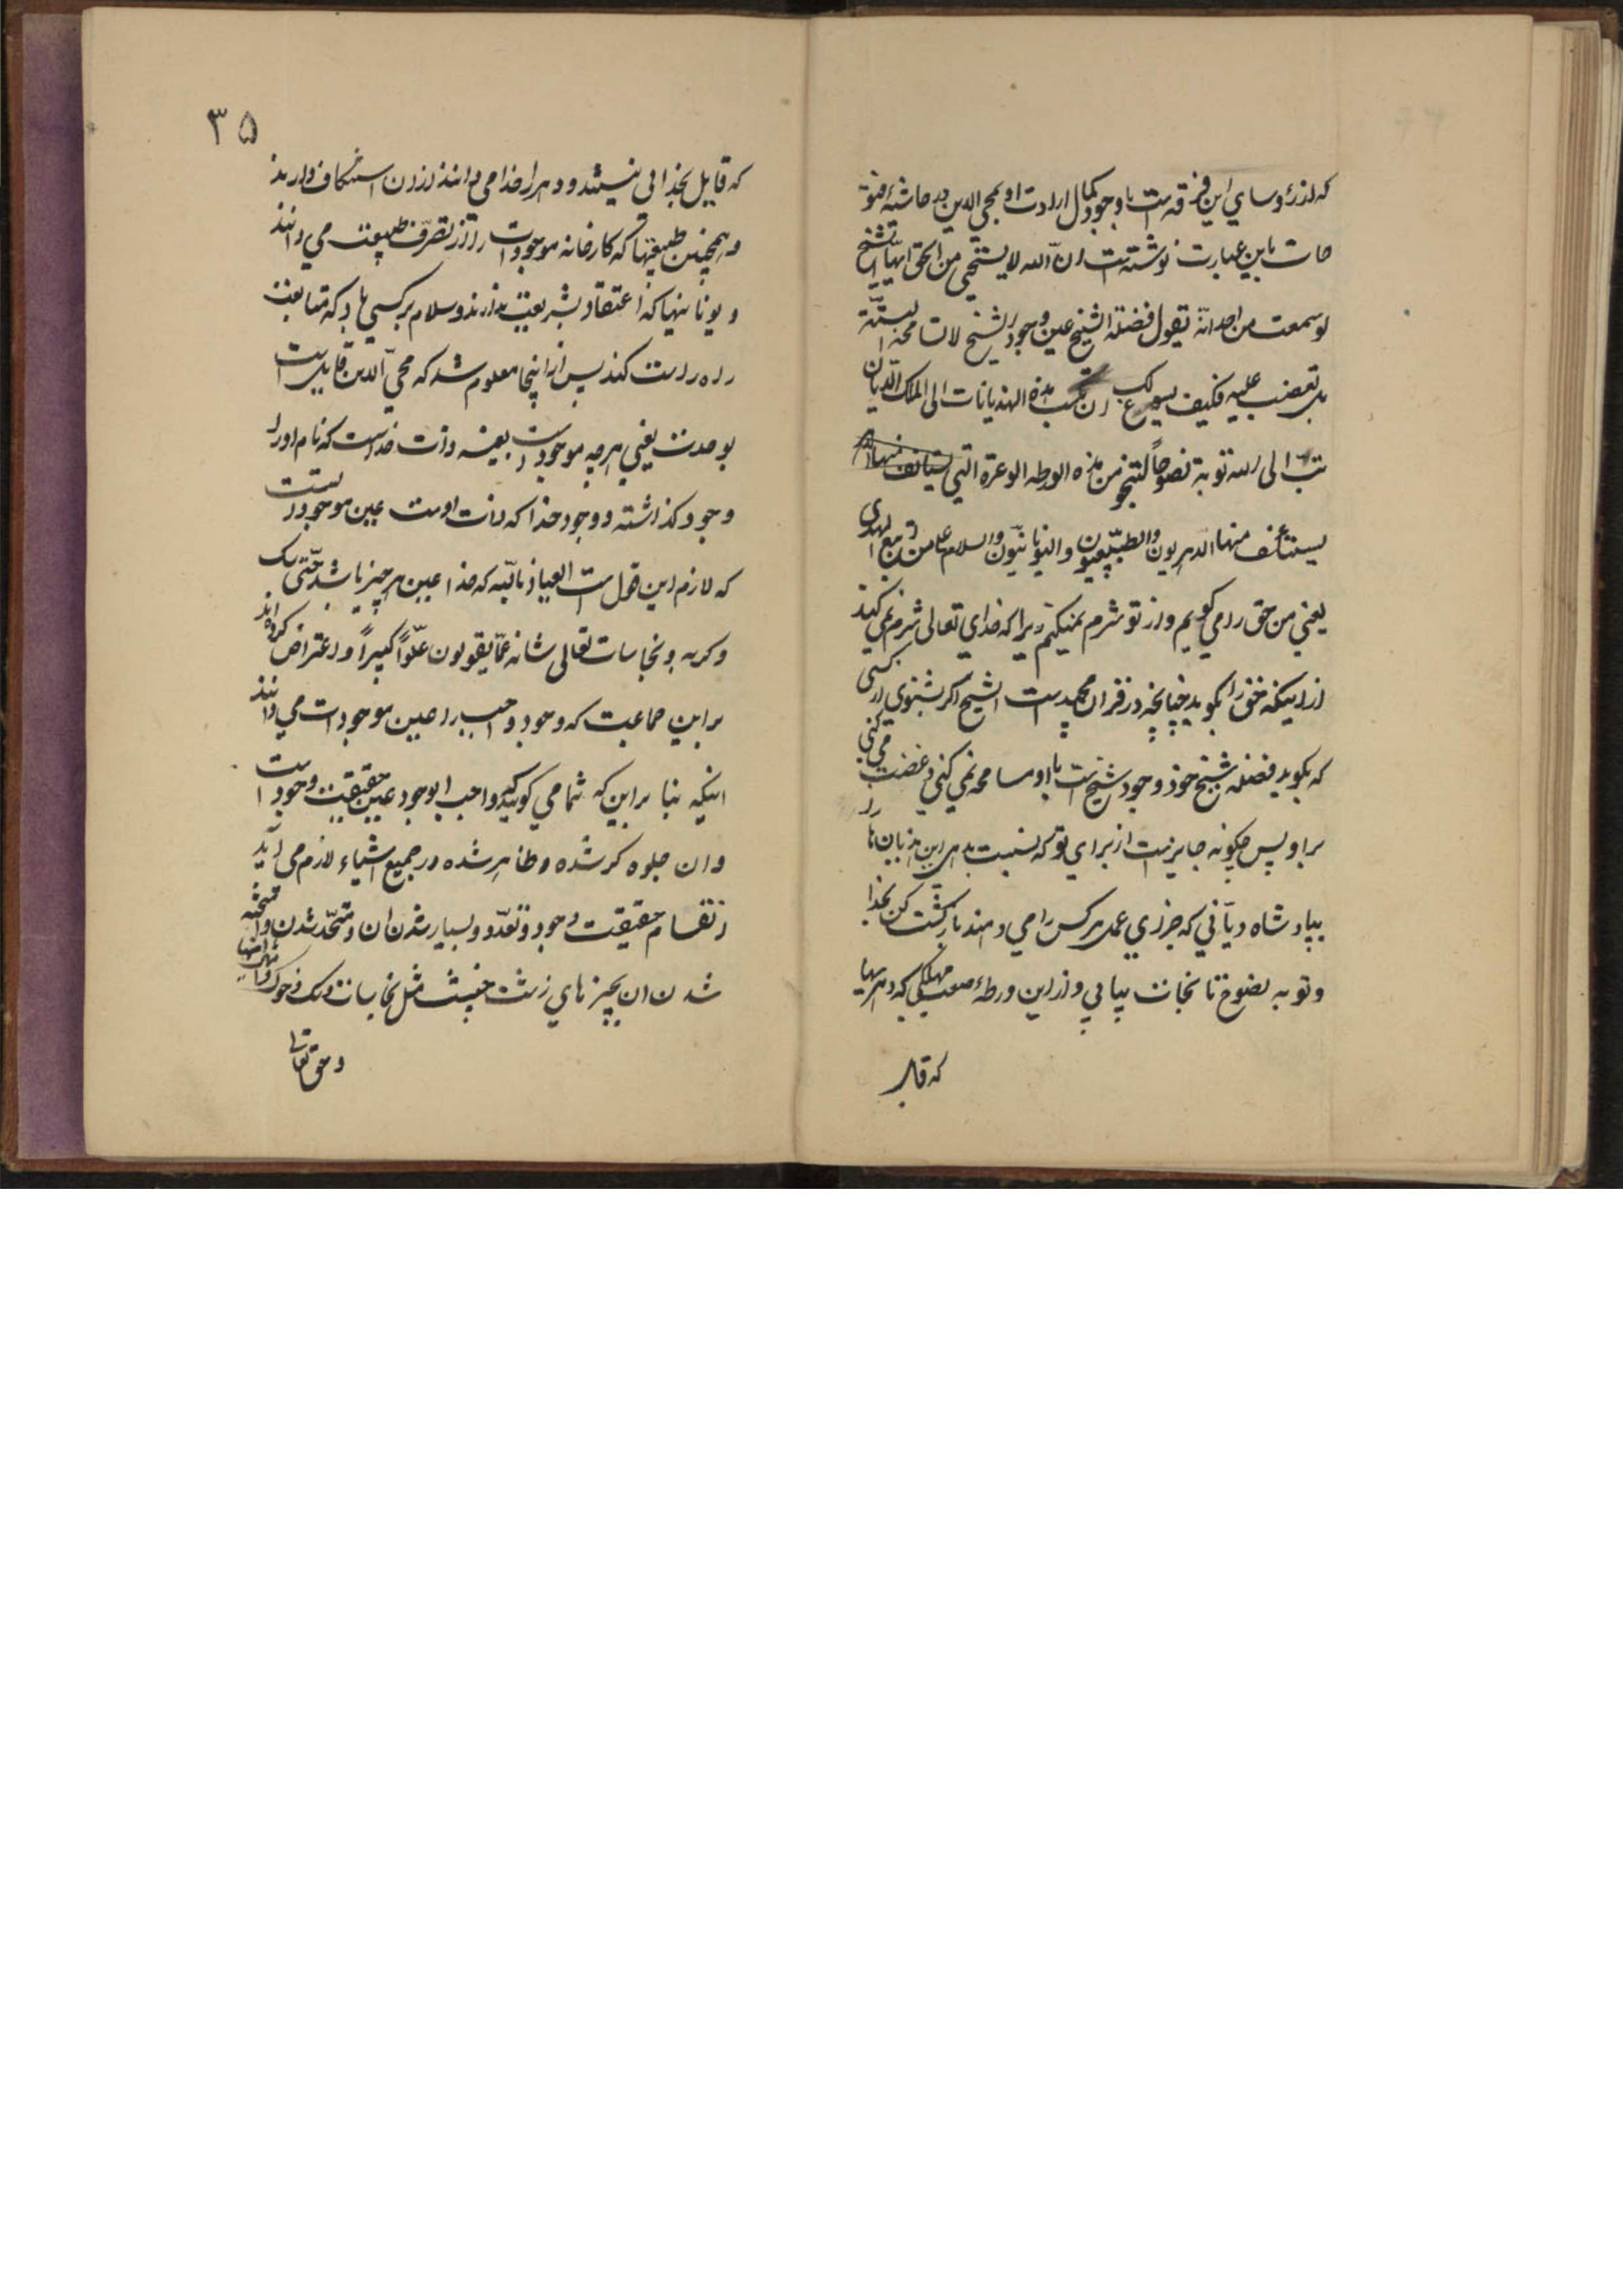 که از رؤسای این فرقه است با وجود کمال ارادت او بمحیی الدین در حاشیهٔ فتو
حات باین عبارت نوشته است ان الله لا یستحیی من الحق ایها الشیخ
لو سمعت من احد انه یقول فضلة الشیخ عین وجود الشیخ لا تسامحه البتّة
بل تغضب علیه فکیف یسوغ لک ان تنسب هذه الهذیانات الی الملک الدیان
تب الی الله توبة نصوحاً لتنجو من هذه الورطه الوعرة التی یستنکف منها
یستنکف منها الدهریون والطبیعیون والیونانیّون والسلام علی من اتبع الهدی
یعنی من حق را میگویم و از تو شرم نمیکنم زیرا که خدای تعالی شرم نمی کند
از اینکه حق را بگوید چنانچه در قران مجید است الشیخ اگر بشنوی از کسی
که بگوید فضله شیخ خود وجود شیخ است با او مسامحه نمی کنی و غضب می کنی
بر او پس چگونه جایز است از برای تو که نسبت بدهی این هذیان ها را
بپادشاه دیّانی که جزای عمل هر کس را می دهد بازگشت کن بخدا
و توبه نصوح تا نجات بیابی از این ورطهٔ صعب مهلکی که دهریها
که قابل
۳۵
که قایل بخدائی نیستند و دهر را خدا می دانند از ان استنکاف دارند
و همچنین طبیعیها که کارخانه موجودات را از تصرّف طبیعت می دانند
و یونانیها که اعتقاد بشریعت ندارند و سلام بر کسی باد که متابعت
راه راست کند پس از اینجا معلوم شد که محیّ الدین قایل است
بوحدت یعنی هر چه موجود است بعینه ذات خداست که نام او را
وجود گذاشته و وجود خدا که ذات اوست عین موجود است
که لازم این قول است العیاذ بالله که خدا عین هر چیز باشد حتّی سگ
و گربه و نجاسات تعالی شانه عمّا یقولون علوّاً کبیراً و اعتراض کرده اند
بر این جماعت که وجود واجب را عین موجودات می دانند
اینکه بنا بر این که شما می گوئید که واجب الوجود عین حقیقت وجود است
و ان جلوه گر شده و ظاهر شده در جمیع اشیاء لازم می آید
انقسام حقیقت وجود و تعدّد و بسیار شدن ان و متّحد شدن و
شدن ان بچیزهای زشت خبیث مثل نجاسات و سگ و خوک
و حق تعالی